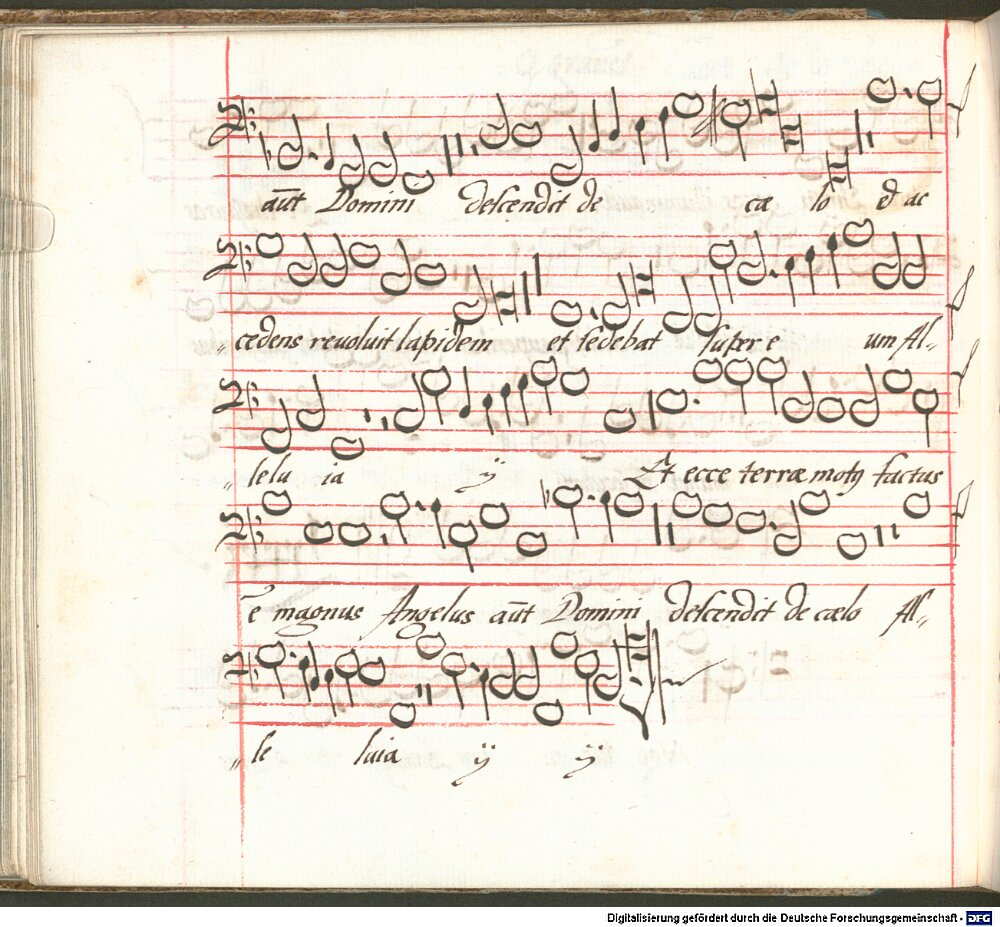 aūt Domini descendit de cæ lo & ac
„ cedens reuoluit lapidem et sedebat super e um Al„
„ lelu ia ÿ Et ecce terræ motꝰ factus
ē magnus Angelus aūt Domini descendit de cælo Al„
„ le luia ÿ ÿ
Digitalisierung gefördert durch die Deutsche Forschungsgemeinschaft - DFG